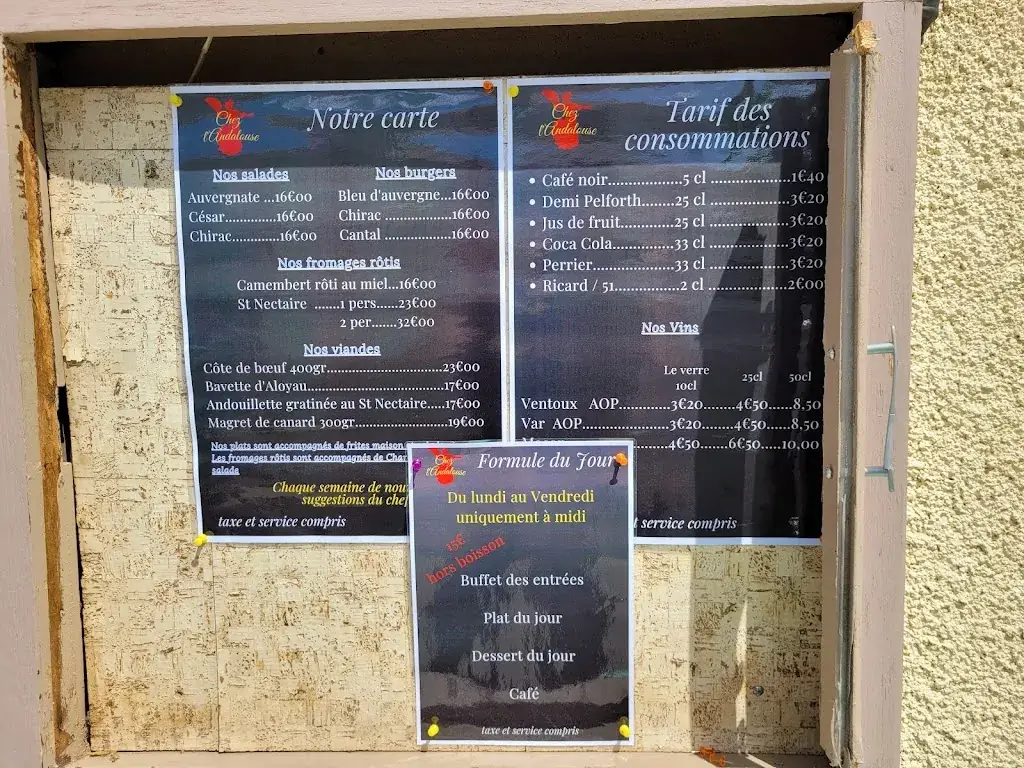 Chez
l'Andalouse
Notre carte
Nos salades
Auvergnate ...16€00
César.............16€00
Chirac............16€00
Nos burgers
Bleu d'auvergne...16€00
Chirac ..................16€00
Cantal ..................16€00
Nos fromages rôtis
Camembert rôti au miel...16€00
St Nectaire .......1 pers......23€00
2 per.......32€00
Nos viandes
Côte de bœuf 400gr..............................23€00
Bavette d'Aloyau....................................17€00
Andouillette gratinée au St Nectaire.....17€00
Magret de canard 300gr................................19€00
Nos plats sont accompagnés de frites maison
Les fromages rôtis sont accompagnés de Char
salade
Chaque semaine de nou
suggestions du chef
taxe et service compris
Chez
l'Andalouse
Tarif des
consommations
• Café noir..................5 cl ....................1€40
• Demi Pelforth........25 cl ...........................3€20
• Jus de fruit.............25 cl ...........................3€20
• Coca Cola...............33 cl ...........................3€20
• Perrier....................33 cl ...........................3€20
• Ricard / 51................2 cl ...........................2€00
Nos Vins
Le verre
10cl 25cl 50cl
Ventoux AOP............3€20........4€50......8,50
Var AOP.....................3€20........4€50......8,50
4€50.......6€50......10,00
t service compris
Chez
l'Andalouse
Formule du Jour
Du lundi au Vendredi
uniquement à midi
15€
hors boisson
Buffet des entrées
Plat du jour
Dessert du jour
Café
taxe et service compris